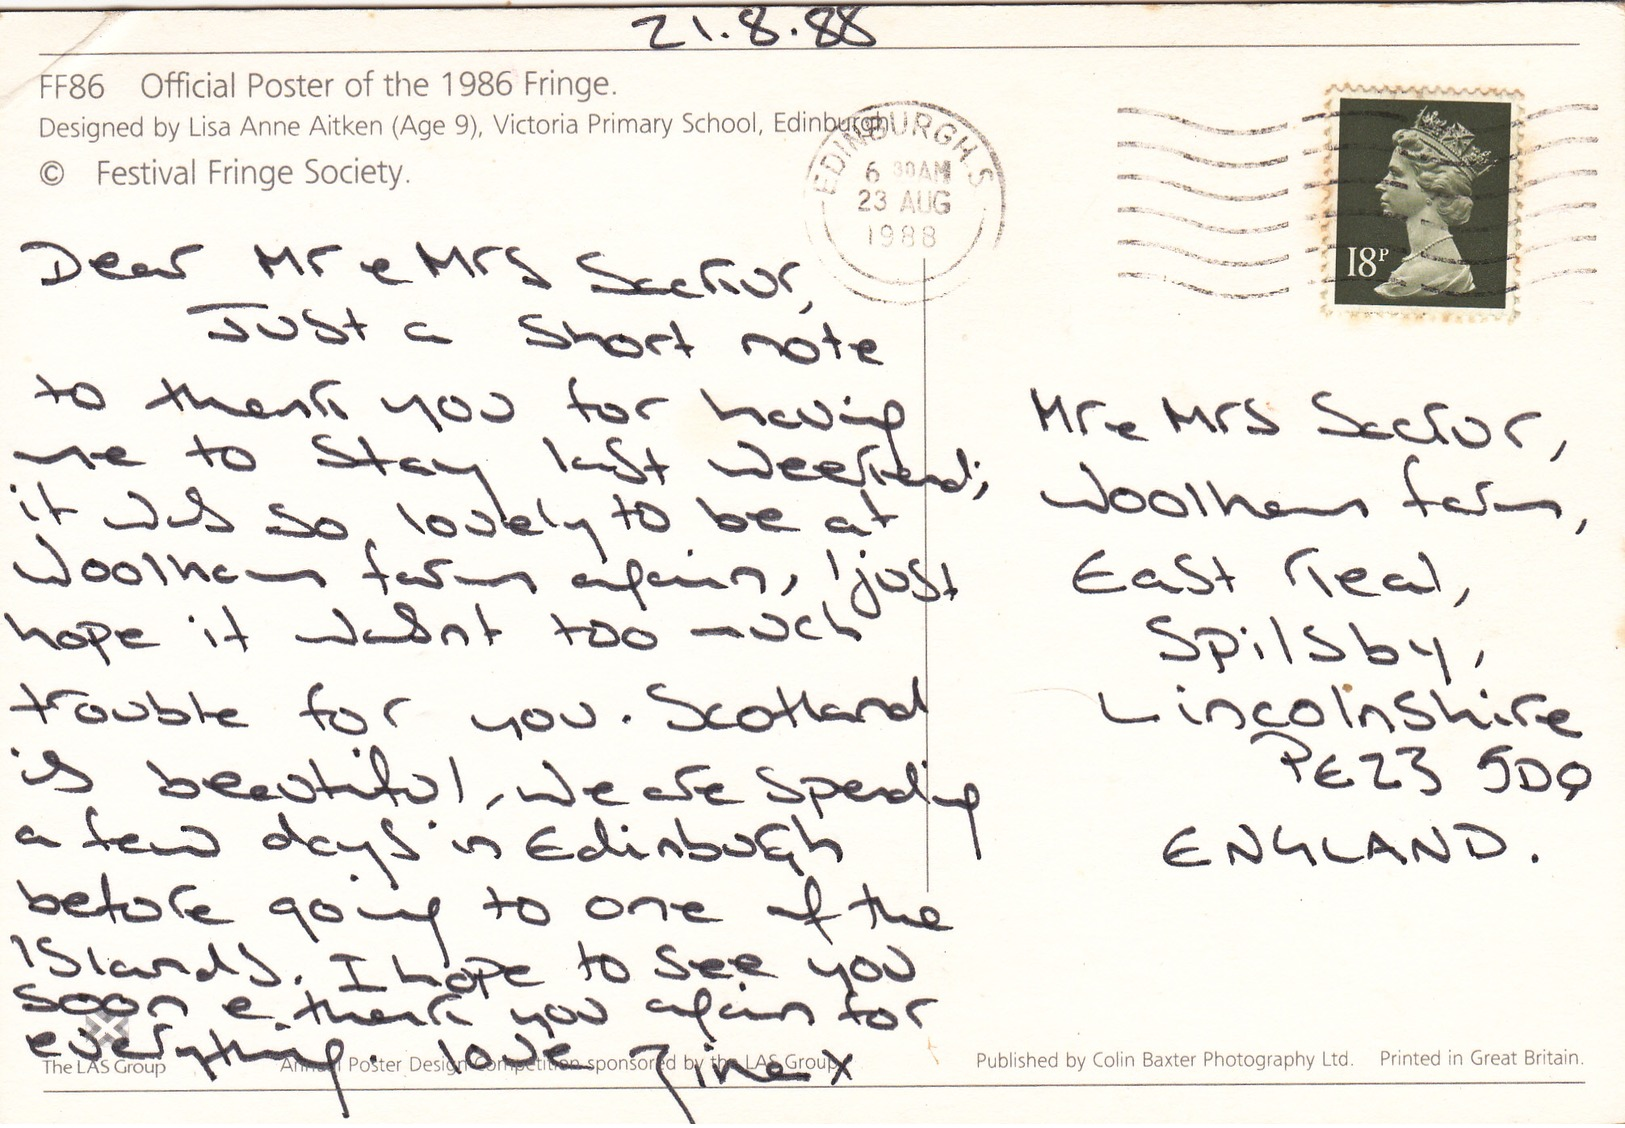 21.8.88
FF86 Official Poster of the 1986 Fringe.
Designed by Lisa Anne Aitken (Age 9), Victoria Primary School, Edinburgh
© Festival Fringe Society.
EDINBURGH.S
6 30AM
23 AUG
1988
18P
Dear Mr e Mrs
Just a short note
to thank you for having
me to stay last weekend;
it was so lovely to be at
Woolham farm again, I just
hope it wasnt too much
trouble for you. Scotland
is beautiful, we are spending
a few days in Edinburgh
before going to one of the
Islands. I hope to see you
soon e thank you again for
everything. love x
Mr e Mrs
Woolham farm,
East Keal,
Spilsby,
Lincolnshire
PE23 5DQ
ENGLAND.
The LAS Group
Annual Poster Design Competition sponsored by the LAS Group.
Published by Colin Baxter Photography Ltd. Printed in Great Britain.